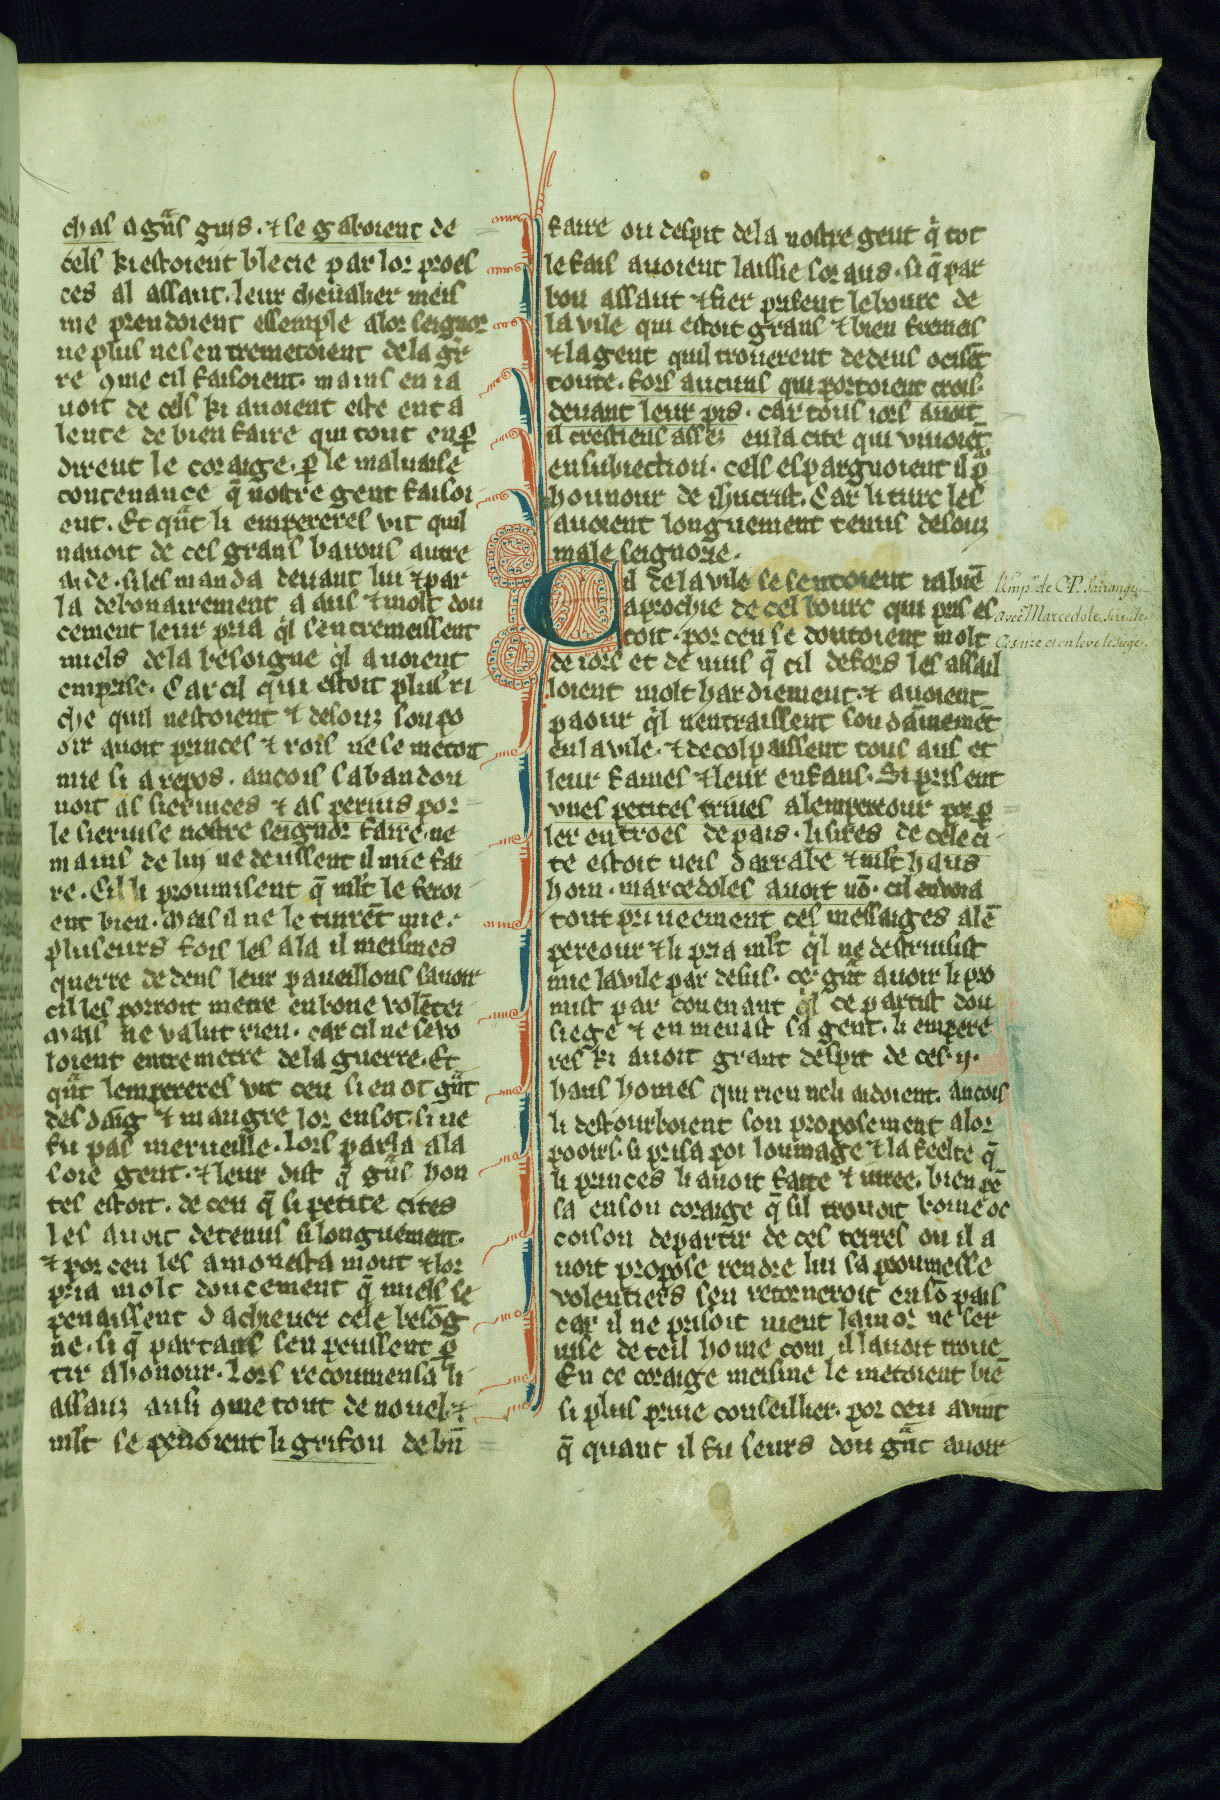 chas a gͣns gius. ⁊ se gaboient de
cels ki estoient blecie par lor proes
ces al assaut. leur cheualier meis
me prendoient essemple alor seignor
ne plus ne sen tremetoient de la gͬ
re ꝯme cil faisoient. mains en ia
uoit de cels ki auoient este enta
lente de bien faire qui tout enꝑ
dirent le coraige. ꝑ le maluaise
contenance q̄ nostre gent faisoi
ent. Et qͣnt li empereres vit quil
nauoit de ces grans barons autre
aide. siles manda deuant lui ⁊ par
la debonairement a aus ⁊ molt dou
cement leur pria qͥl sentremeissent
miels de la besoigne qͥl auoient
emprise. Car cil qui estoit plus ri
che quil nestoient ⁊ desouz son po
oir auoit princes ⁊ rois ne se metoit
mie si a repos. ancois sabandon
noit as seruices ⁊ as perius por
le seruise nostre seignor faire. ne
mains de lui ne deussent il mie fai
re. Cil li proumisent q̄ mlt le feroi
ent bien. Mais il ne le tinrēt mie.
pluseurs fois les ala il meismes
querre dedens leur paueillons sauoir
cil les porroit metre en bone volētei
Mais ne valut rien. car cil ne se vo
loient entremetre de la guerre. Et
qͣnt lempereres vit ceu si en ot gͣnt
desdaig ⁊ maugre lor en sot. si ne
fu pas merueille. Lors parla ala
soie gent. ⁊ leur dist q̄ gͣns hon
tes estoit. de ceu q̄ si petite cites
les auoit detenus si longuement.
⁊ por ceu les amonesta mout ⁊ lor
pria molt doucement q̄ miels se
penaissent dacheuer cele besōg
ne. si q̄ partans sen peussent ꝑ
tir a honour. Lors recoumensa li
assauz ausi ꝯme tout de nouel. ⁊
mlt se penoient li grifon de bn̄
faire ou despit de la nostre gent qͥ tot
le fais auoient laissie sor aus. si q̄ par
bon assaut ⁊ fier prisent le bourc de
la vile qui estoit grans ⁊ bien fremeis
⁊ la gent quil trouerent dedens ocisēt
toute. fors aucuns qui portoient crois.
deuant leur pis. car tous iors auoit
il crestiens assez en la cite qui viuoiēt
en subiection. cels esparguoient il ꝑ
hounour de ihucrist. Car li turc les
auoient longuement tenus desouz
male seignorie.
Cil de la vile se sentoient ia biē
aprochie de cel bourc qui pris es
toit. por ceu se doutoient molt
de iors et de nuis q̄ cil defors les assail
loient molt hardiement. ⁊ auoient
paour qͥl nentraissent soudainemēt
en la vile. ⁊ decolpaissent tous aus et
leur fames ⁊ leur enfans. Si prisent
vnes petites triues alempereour por ꝑ
ler en troes de pais. li sires de cele ci
te estoit neis darrabe ⁊ mlt haus
hom. marcedoles auoit nō. cil enuoia
tout priueement ces messaiges alē
pereour ⁊ li pria mlt qͥl ne destruisist
mie la vile par desus. ce gͣnt auoir li pro
mist par couenant qͥl ce partist dou
siege ⁊ en menast sa gent. li empere
res ki auoit grant despit de ces .ij.
haus homes qui rien ne li aidoient. ancois
li destourboient son proposement a lor
pooirs. si prisa poi loumage ⁊ la feelte q̄
li princes li auoit faite ⁊ iuree. bien pē
sa en son coraige q̄ sil trouoit bonne oc
coison departir de ces terres ou il a
uoit propose rendre lui sa proumesse
volentiers sen retorneroit en sō pais
car il ne prisoit nient lamor ne ser
uise de teil home com il lauoit troue
En ce coraige meisme le metoient biē
si plus priue conseillier. por ceu auint
q̄ quant il fu seurs dou gͣnt auoir
l'Emp.r de C.P. s'arrange
avec Marcedole, sire de
Césarée et en leve le siège.